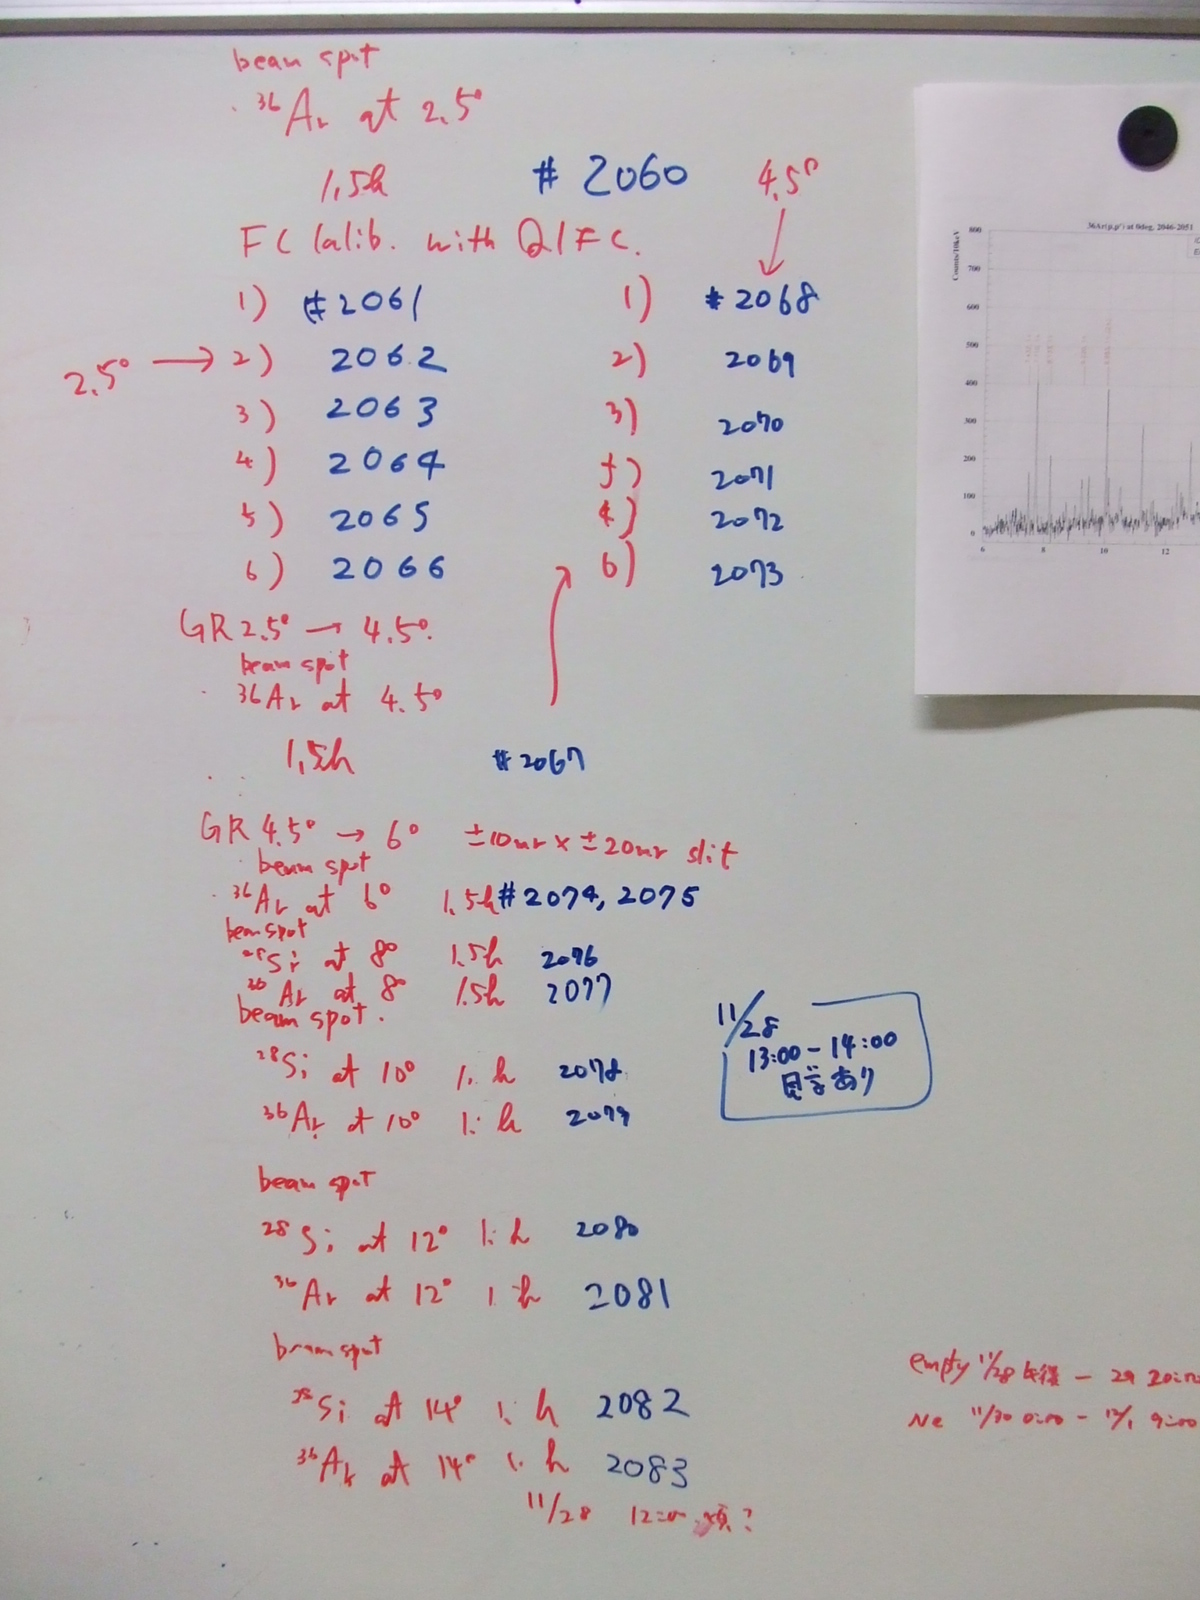 beam spot
· ³⁶Ar at 2.5°
1.5h # 2060 4.5°
FC Calib. with Q1FC.
1) #2061 1) #2068
2.5° → 2) 2062 2) 2069
3) 2063 3) 2070
4) 2064 5) 2071
5) 2065 4) 2072
6) 2066 6) 2073
GR 2.5° → 4.5°.
beam spot
· ³⁶Ar at 4.5°
1.5h #2067
GR 4.5° → 6° ±10mr × ±20mr slit
· beam spot
· ³⁶Ar at 6° 1.5h #2074, 2075
beam spot
²⁸Si at 8° 1.5h 2076
³⁶Ar at 8° 1.5h 2077
beam spot.
²⁸Si at 10° 1. h 2078
³⁶Ar at 10° 1. h 2079
11/28
13:00-14:00
見学あり
beam spot
²⁸Si at 12° 1. h 2080
³⁶Ar at 12° 1. h 2081
beam spot
²⁸Si at 14° 1. h 2082
³⁶Ar at 14° 1. h 2083
11/28 12:00 頃?
empty 11/28 午後 - 29 20:00
Ne 11/30 0:00 - 12/1 9:00
36Ar(p,p') at 0deg, 2046-2051
Counts/10keV
800
700
600
500
400
300
200
100
0
6 8 10 12